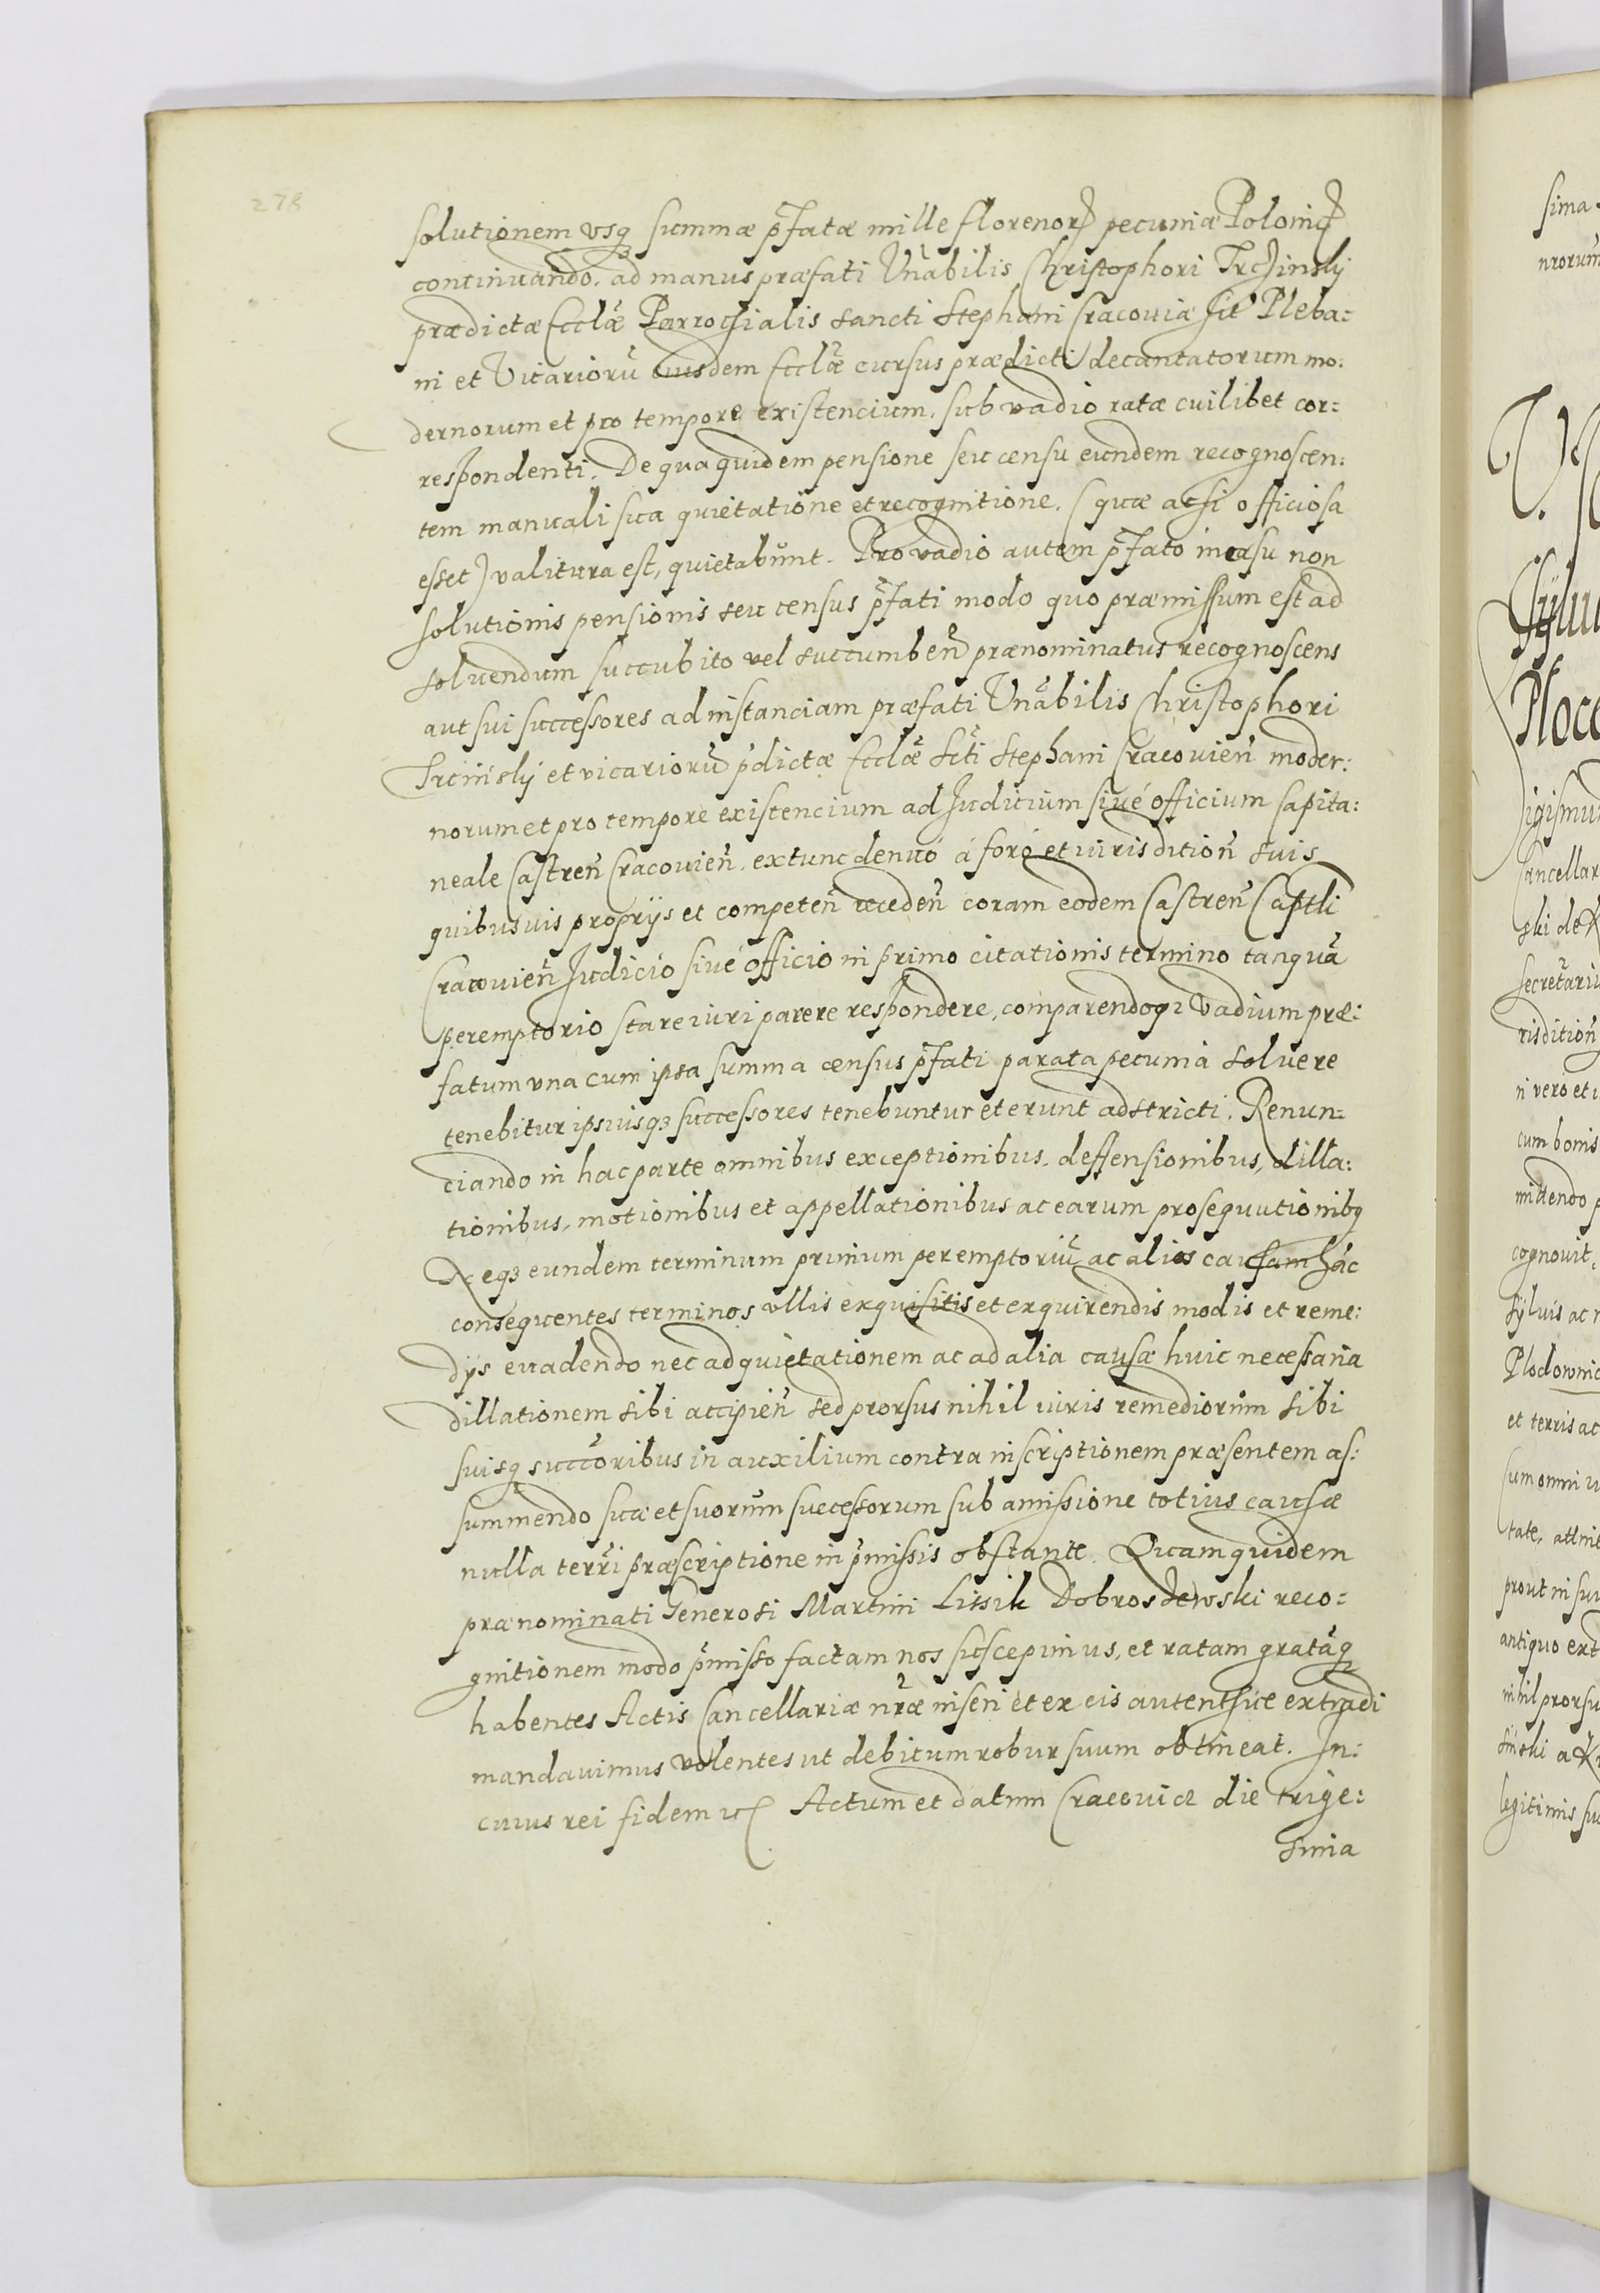 278
solutionem usq summæ pfatæ mille florenor pecuniæ Polonic
continuando. ad manus præfati Vnabilis Christophori Trczinsky
prædictæ Ecclæ Parrochialis sancti Stephani Cracouiæ sit Pleba:
ni et Vicarioru eiusdem Ecclæ cursus prædicti decantatorum mo:
dernorum et pro tempore existencium. sub vadio ratæ cuilibet cor:
respondenti. De qua quidem pensione seu censu eundem recognoscen:
tem manuali sua quietatione et recognitione. (quæ acsi officiosa
esset) valitura est, quietabunt. Pro vadio autem pfato in casu non
solutionis pensionis seu census pfati modo quo præmissum est ad
soluendum succubito vel succumben prænominatus recognoscens
aut sui successores ad instanciam præfati Vnabilis Christophori
Trcinsky et vicarioru pdictæ Ecclæ Scti Stephani Cracouien moder:
norum et pro tempore existencium ad Judicium siué officium Capita:
neale Castren Cracouien. extunc denuó á foró et iurisdition suis
quibusuis proprijs et competen receden coram eodem Castren Captli
Cracouien Judicio siué officio in primo citationis termino tanqua
peremptorio stare iuri parere respondere, comparendoq3 vadium præ:
fatum vna cum ipsa summa census pfati parata pecunia soluere
tenebitur ipsiusq3 successores tenebuntur et erunt adstricti. Renun=
ciando in hac parte omnibus exceptionibus. deffensionibus, dilla:
tionibus, motionibus et appellationibus ac earum prosequutionibq
Neq3 eundem terminum primum peremptoriu ac alios causam hác
consequentes terminos vllis exquisitis et exquirendis modis et reme:
dijs euadendo nec ad quietationem ac ad alia causæ huic necessaria
dillationem sibi accipien sed prorsus nihil iuris remediorum sibi
suisq succoribus in auxilium contra inscriptionem præsentem as:
summendo suæ et suorum successorum sub amissione totius causæ
nulla terri præscriptione in pmissis obstante. Quam quidem
prænominati Generosi Martini Lissik Dobrosdewski reco:
gnitionem modo pmisso factam nos suscepimus, et ratam grataq
habentes Actis Cancellariæ nræ inseri et ex eis autentice extradi
mandauimus volentes ut debitum robur suum obtineat. In:
cuius rei fidem Actum et datum Cracouiæ die trige:
sima
sima
nrorum
Plocc
igismu
Cancellar
ski de
secretariu
risdition
n vero et
cum bonis
mittendo p
cognouit,
syluis ac
Plodownic
et terris ac
sum omni
tate, attin
prout in su
antiquo ext
nihil prorsu
sinski a
legitimis su